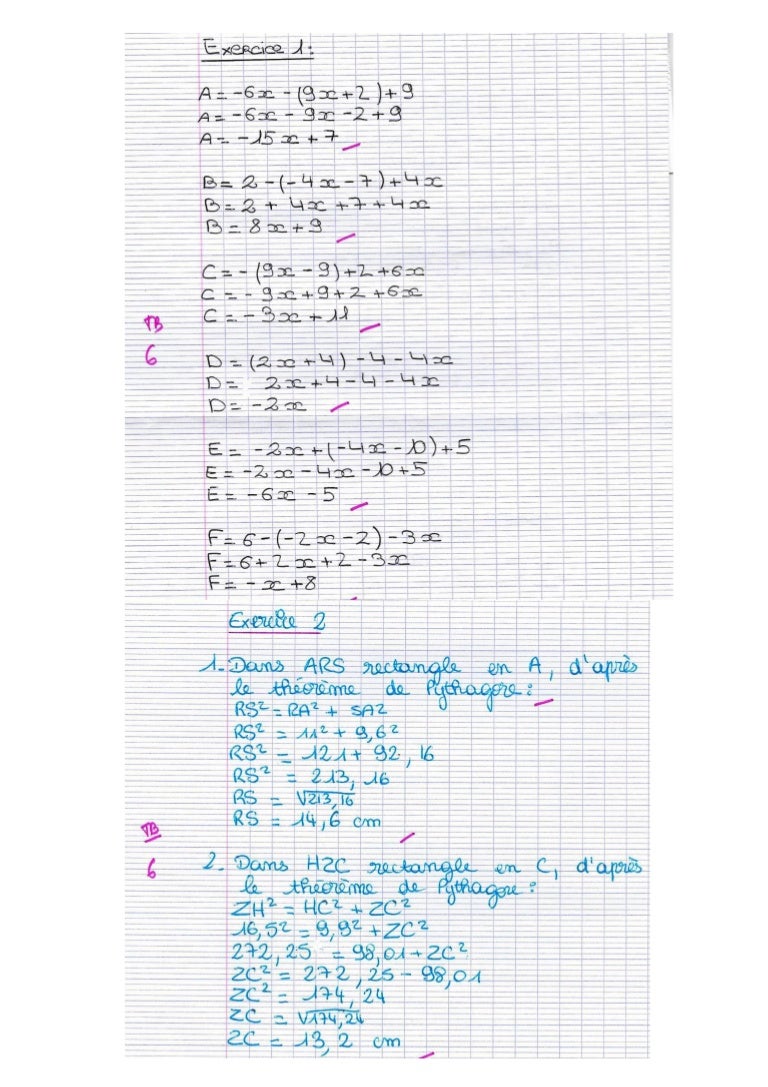 Exercice 1:
A = -6x - (9x+2)+9
A = -6x - 9x -2 +9
A = -15x + 7
B = 2 -(-4x-7)+4x
B = 2 + 4x +7+4x
B = 8x+9
C = - (9x-9)+2+6x
C = - 9x+9+2+6x
C = - 3x + 11
TB
6
D = (2x+4) -4 -4x
D = 2x+4-4-4x
D = -2x
E = -2x+(-4x-10)+5
E = -2x-4x-10+5
E = -6x -5
F = 6-(-2x-2)-3x
F = 6+2x+2-3x
F = -x+8
Exercice 2
1. Dans ARS rectangle en A, d'après
le théorème de Pythagore :
RS² = RA² + SA2
RS² = 11² + 9,6²
RS² = 121+ 92,16
RS² = 213,16
RS = √213,16
RS = 14,6 cm
TB
6
2. Dans HZC rectangle en C, d'après
le théorème de Pythagore :
ZH² = HC² + ZC²
16,5² = 9,9² + ZC²
272,25 = 98,01+ZC²
ZC² = 272,25-98,01
ZC² = 174,24
ZC = √174,24
ZC = 13,2 cm